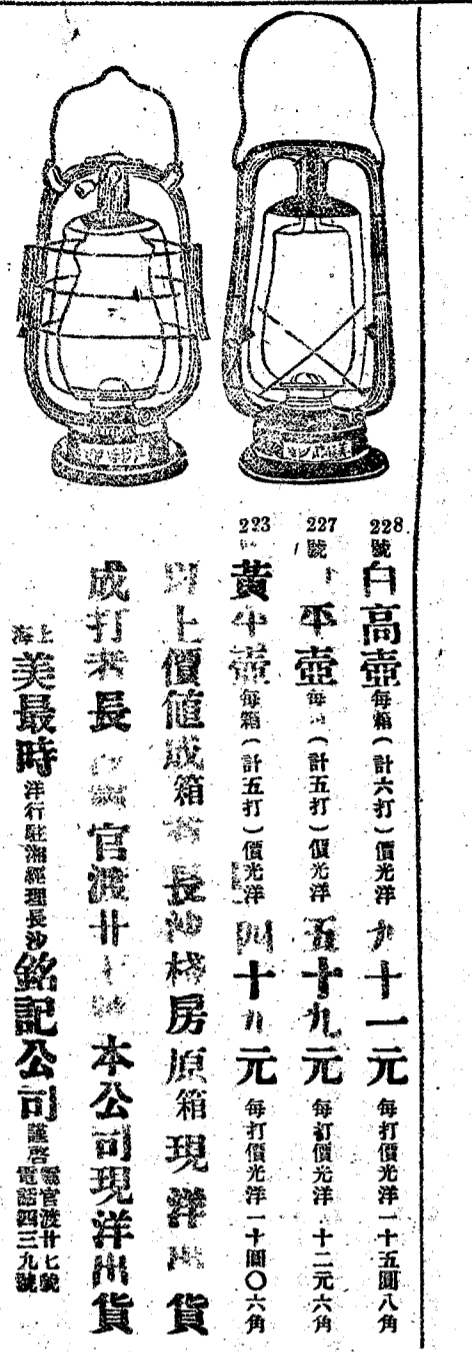 228號白高壺每箱(計六打)價光洋九十一元每打價光洋一十五圓八角
227號 平壺每 (計五打)價光洋五十九元每打價光洋 十二元六角
223 黃平壺每箱(計五打)價光洋四十九元每打價光洋一十圓〇六角
以上價值成箱者長沙棧房原箱現洋出貨
成打者長 官渡廿七號本公司現洋出貨
上海美最時洋行駐湘經理長沙銘記公司謹啓
官渡廿七號
電話四三九號